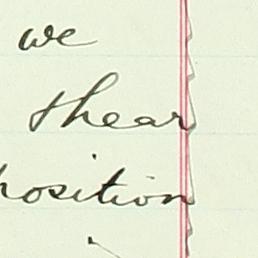 we
shear
position